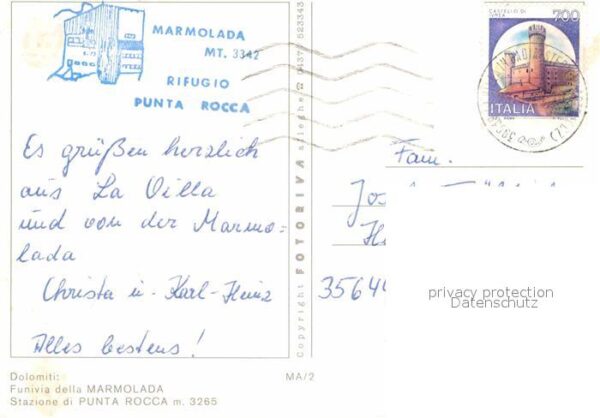 MARMOLADA
MT. 3342
RIFUGIO
PUNTA ROCCA
Es grüßen herzlich
aus La Villa
und von der Marmo-
lada
Christa u. Karl-Heinz
Alles bestens!
Dolomiti:
Funivia della MARMOLADA
Stazione di PUNTA ROCCA m. 3265
MA/2
Copyright FOTORIVA Alleghe ☎ 0437 523343
CASTELLO DI
700
ITALIA
Fam.
privacy protection
Datenschutz